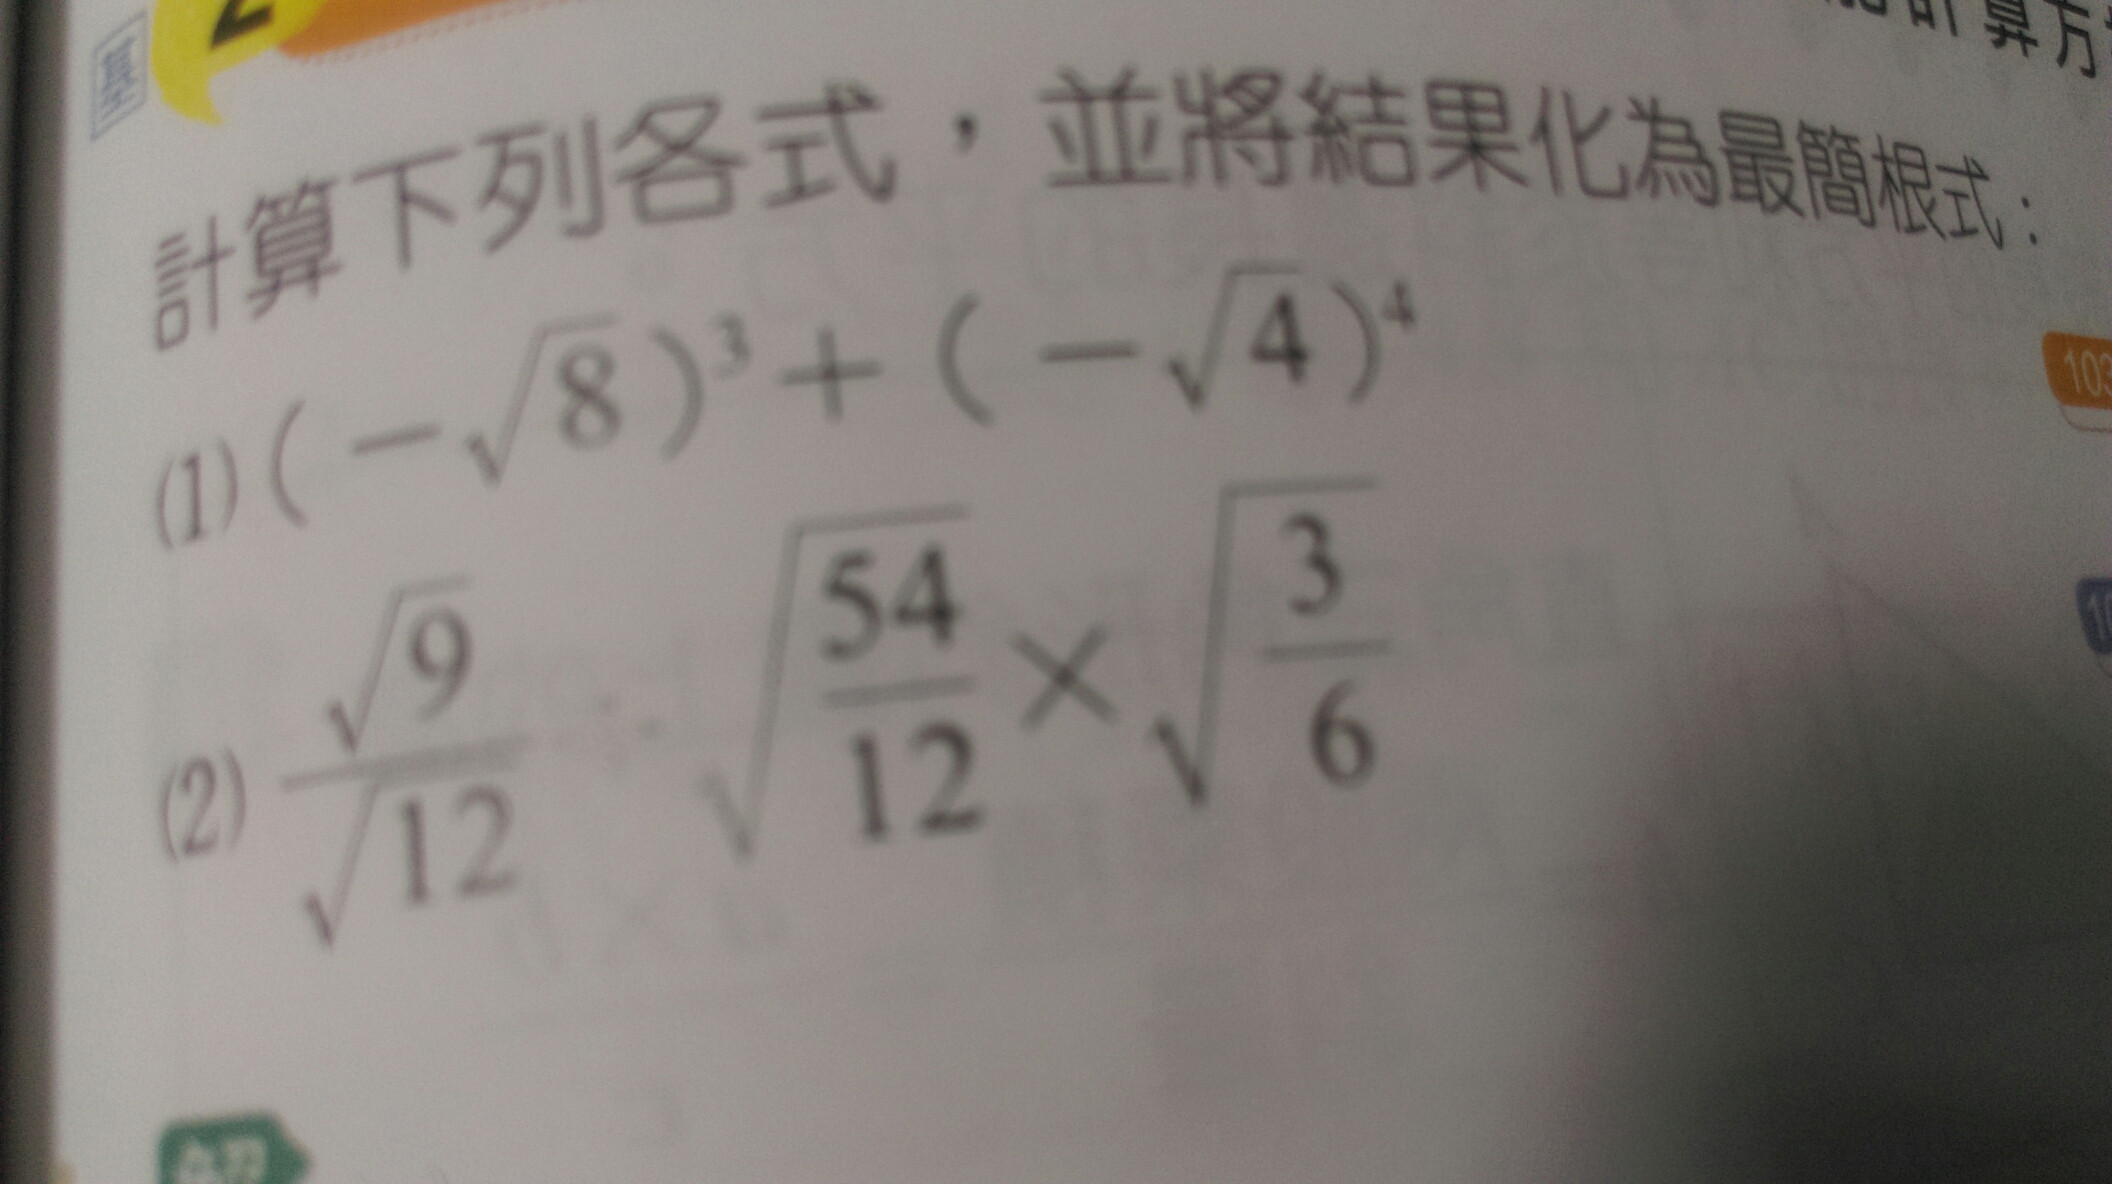 計算方
計算下列各式，並將結果化為最簡根式：
(1) (-√8)³+(-√4)⁴
103
(2) √9/√12 ÷ √(54/12) × √(3/6)